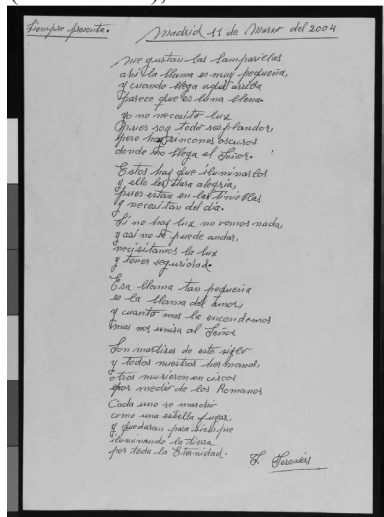 Siempre presente.
Madrid 11 de Marzo del 2004
Me gustan las lamparillas
ahi la llama es muy pequeña,
y cuando llega aqui arriba
parece que es luna llena.
yo no necesito luz
pues soy todo resplandor,
pero hay rincones oscuros
donde no llega el Señor.
Estos hay que iluminarlos
y ello les dara alegria,
pues estan en las tinieblas
y necesitan del dia.
Si no hay luz no vemos nada,
y asi no se puede andar,
necisitamos la luz
y tener seguridad.
Esa llama tan pequeña
es la llama del amor,
y cuanto mas la encendemos
mas nos unira al Señor
Son martires de este siglo
y todos nuestros hermanos,
otros murieron en circos
por medio de los Romanos
Cada uno se marchó
como una estrella fugaz,
y quedaran para siempre
iluminando la tierra
por toda la Eternidad.